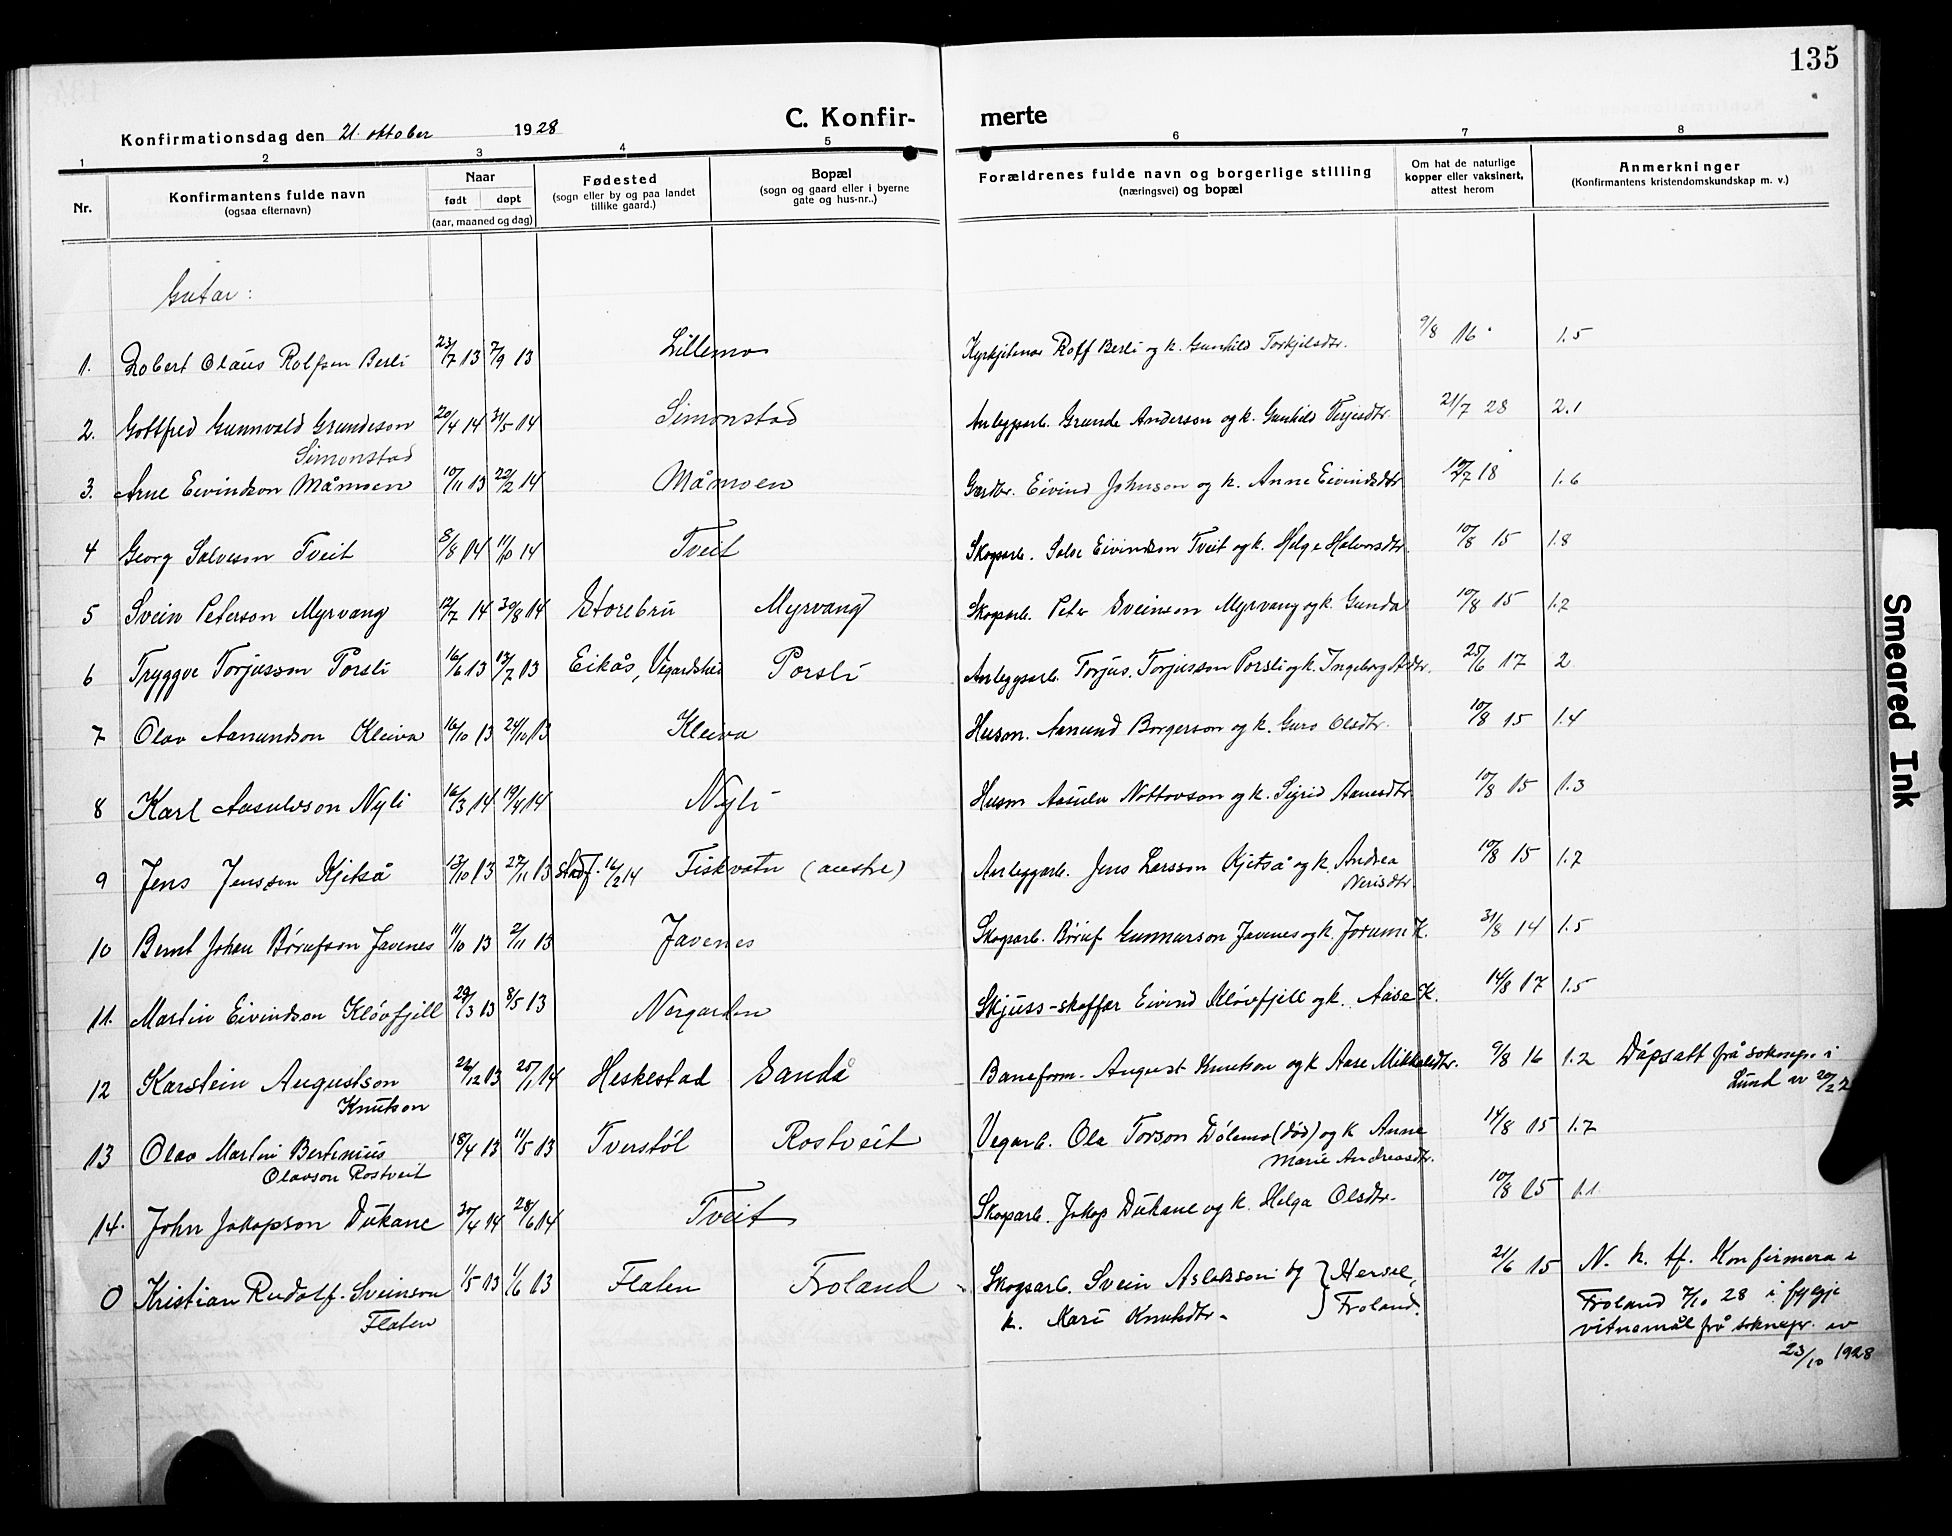 135
C. Konfir- merte
Konfirmationsdag den 21. oktober 1928
1 2 3 4 5 6 7 8
Nr.
Konfirmantens fulde navn
(ogsaa efternavn)
Naar
født døpt
(aar, maaned og dag)
Fødested
(sogn eller by og paa landet
tillike gaard.)
Bopæl
(sogn og gaard eller i byerne
gate og hus-nr..)
Forældrenes fulde navn og borgerlige stilling
(næringsvei) og bopæl
Om hat de naturlige
kopper eller vaksinert,
attest herom
Anmerkninger
(Konfirmantens kristendomskundskap m. v.)
Gutar:
1. Robert Olaus Rolfson Berli 23/7 13 7/9 13 Lillemo Kyrkjetenar Rolf Berli og k. Gunhild Torkjelsdtr. 9/8 16 1.5
2. Gottfred Gunnvald Grundeson 20/4 14 31/5 14 Simonstad Anleggsarb. Grunde Anderson og k. Gunhild Terjesdtr. 21/7 28 2.1
Simonstad
3. Arne Eivindson Måmoen 10/11 13 22/2 14 Måmoen Gardbr. Eivind Johnson og k. Anne Eivindsdtr 12/7 18 1.6
4 Georg Salveson Tveit 8/8 14 11/10 14 Tveit Skogsarb. Salve Eivindson Tveit og k. Helge Halvorsdtr. 10/8 15 1.8
5 Svein Peterson Myrvang 12/7 14 30/8 14 Storebru Myrvang Skogsarb. Peter Sveinson Myrvang og k. Gunda 10/8 15 1.2
6 Tryggve Torjusson Porsli 16/6 13 13/7 13 Eikås, Vegardshei Porsli Anleggsarb. Torjus Torjusson Porsli og k. Ingeborg Adtr. 25/6 17 2
7 Olav Aanundson Kleiva 16/10 13 24/10 13 Kleiva Husm. Aanund Borgerson og k. Guro Olsdtr. 10/8 15 1.4
8 Karl Aasulvson Nyli 16/3 14 19/4 14 Nyli Husm Aasulv Nottovson og k. Sigrid Aanesdtr. 10/8 15 1.3
9 Jens Jensson Kjetså 13/10 13 27/11 13 stadf. 16/2 14 Fiskvatn (austre) Anleggarb. Jens Larsson Kjetså og k. Andrea 10/8 15 1.7
Nerisdtr.
10 Bernt Johan Børufson Javenes 11/10 13 2/11 13 Javenes Skogsarb. Børuf Gunnarson Javenes og k. Jorunn K. 31/8 14 1.5
11. Martin Eivindson Kløvfjell 29/3 13 8/5 13 Norgarden Skjuss-skaffar Eivind Kløvfjell og k. Aase K. 14/8 17 1.5
12 Karstein Augustson 22/12 13 25/1 14 Heskestad Sandå Baneform. August Knutson og k Aase Mikkelsdtr. 9/8 16 1.2 Dåpsatt frå soknepr. i
Knutson Lund av 20/2 2
13 Olav Martin Bertinius 18/4 13 11/5 13 Tverstøl Rostveit Vegarb. Ola Torson Dølemo (død) og k Anne 14/8 15 1.7
Olavson Rostveit Marie Andreasdtr.
14. John Jakopson Dukane 30/4 14 28/6 14 Tveit Skogsarb. Jakop Dukane og k. Helga Olsdtr. 10/8 15 1.1
0 Kristian Rudolf Sveinson 1/5 13 1/6 13 Flaten Froland Skogsarb. Svein Aslakson og } Hersel, 21/6 15 N. k. tf. Konfirmera i
Flaten k. Mari Knutsdtr. } Froland. Froland 7/10 28 i fylgje
vitnemål frå soknepr. av
23/10 1928
Smeared Ink